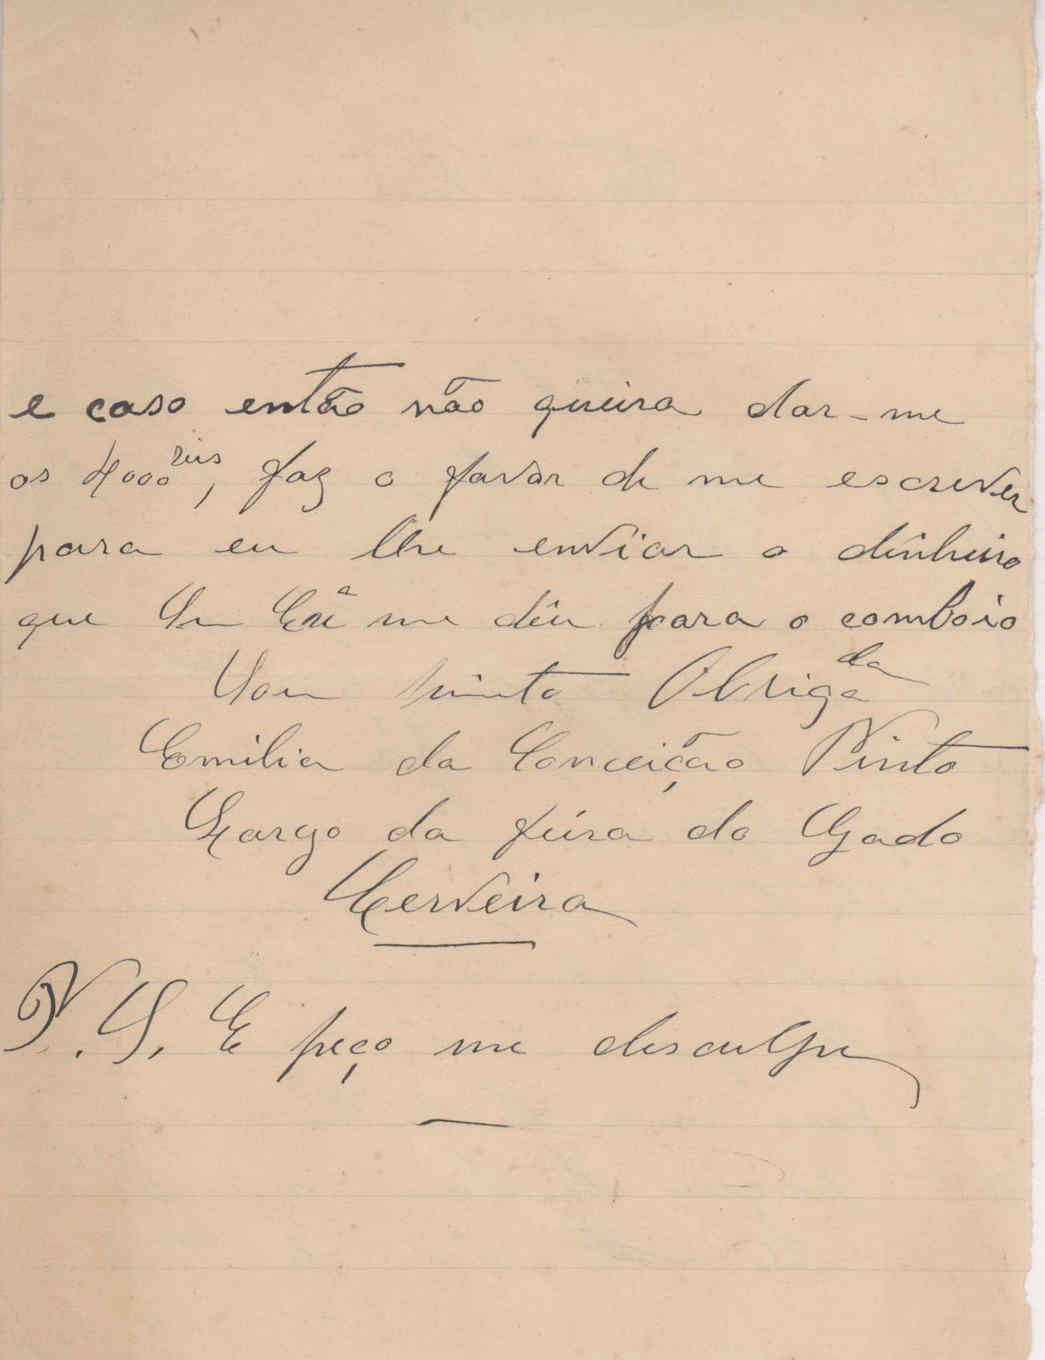 e caso então não queira dar-me
os 4000 reis, faz o favor de me escrever
para eu lhe enviar o dinheiro
que Va Exª me dêu para o comboio
Sou muito Obrigada
Emilia da Conceição Pinto
Largo da feira do Gado
Cerveira
P.S. E peço me desculpe